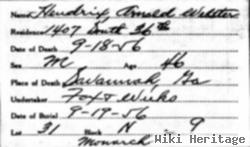 Name Hendrix Arnold Webster
Residence 1407 South 36th
Date of Death 9-18-56
Sex M Age 46
Place of Death Savannah, Ga
Undertaker Fox & Weeks
Date of Burial 9-19-56
Lot 31 Block N 9
Monarch
Wiki Heritage